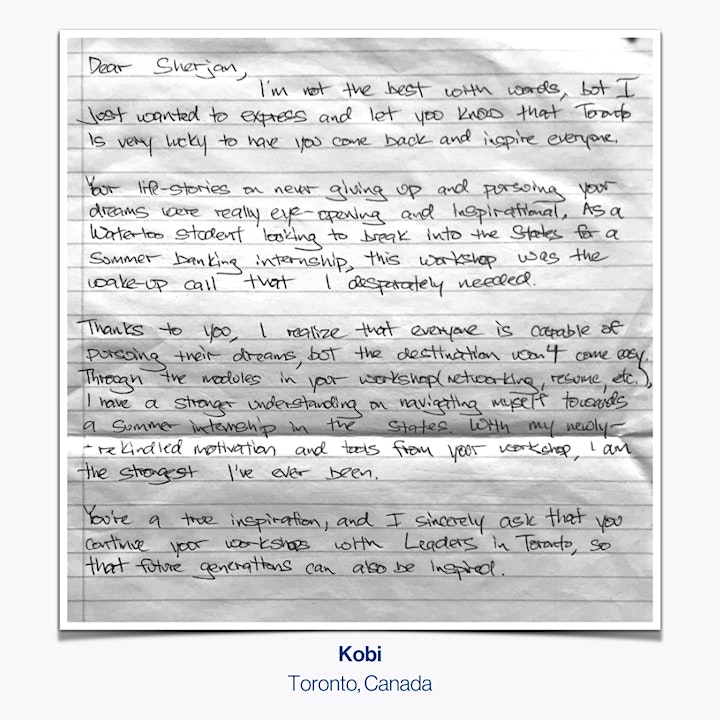 Dear Sherjan,
I'm not the best with words, but I
Just wanted to express and let you know that Toronto
is very lucky to have you come back and inspire everyone.
Your life-stories on never giving up and pursuing your
dreams were really eye-opening and inspirational. As a
Waterloo student looking to break into the States for a
Summer banking internship, this workshop was the
wake-up call that I desperately needed.
Thanks to you, I realize that everyone is capable of
pursuing their dreams, but the desttination won't come easy.
Through the modules in your workshop (networking, resume, etc.),
I have a stronger understanding on navigating myself towards
a Summer internship in the States. With my newly-
-rekindled motivation and tools from your workshop, I am
the strongest I've ever been.
You're a true inspiration, and I sincerely ask that you
continue your workshops with Leaders in Toronto, so
that future generations can also be inspired.
Kobi
Toronto, Canada